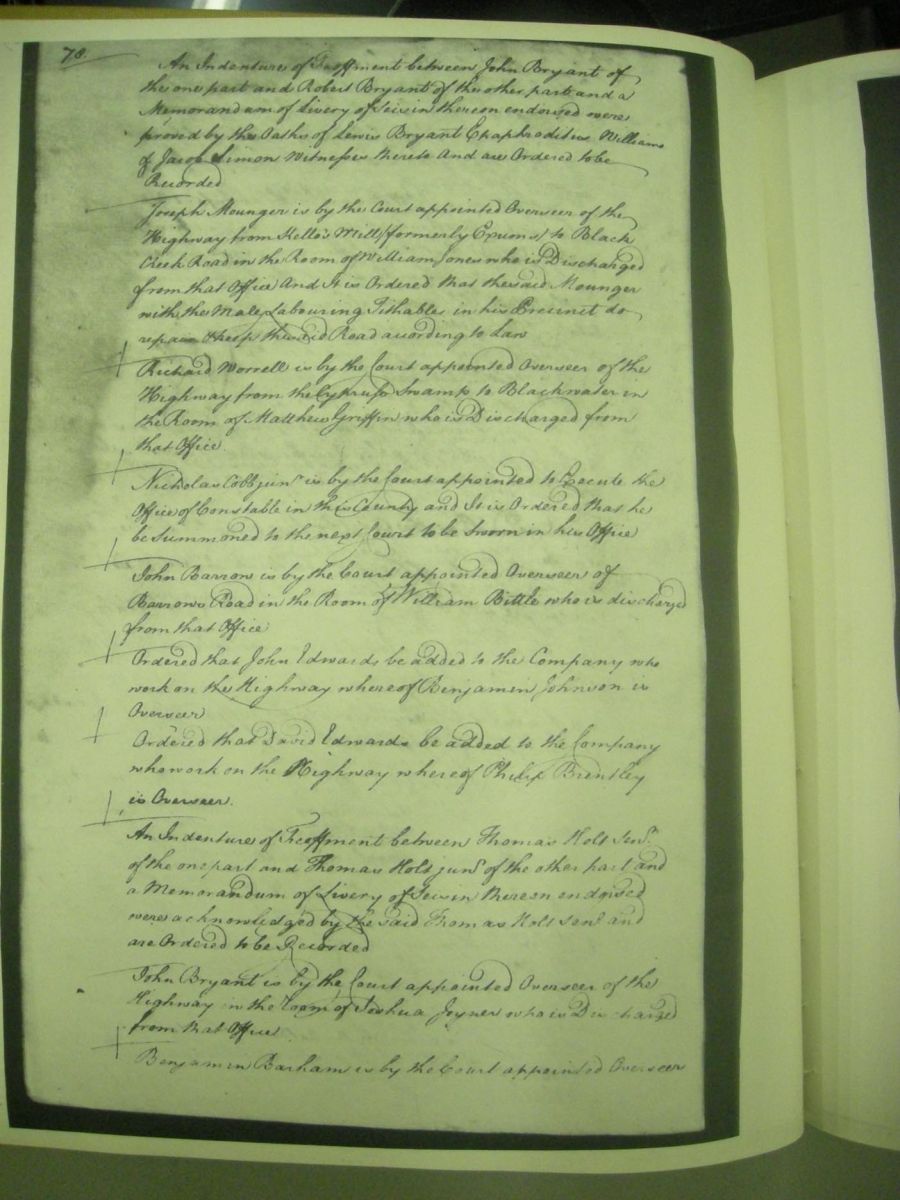 78.
An Indenture of Feoffment between John Bryant of
the one part and Robert Bryant of the other part and a
Memorandum of Livery of Seisin thereon endorsed were
proved by the Oaths of Lewis Bryant Epaphroditus Williams
& Jacob Simon Witnesses thereto And are Ordered to be
Recorded
Joseph Mounger is by the Court appointed Overseer of the
Highway from Kello's Mill (formerly Exums) to Black
Creek Road in the Room of William Jones who is Discharged
from that Office And It is Ordered that the said Mounger
with the Male Labouring Tithables in his Precinct do
repair & keep the said Road according to Law
Richard Worrell is by the Court appointed Overseer of the
Highway from the Cypruss Swamp to Blackwater in
the Room of Matthew Griffin who is Discharged from
that Office.
Nicholas Cobb junr. is by the Court appointed to Execute the
Office of Constable in this County and It is Ordered that he
be Summoned to the next Court to be Sworn in his Office
John Barrow is by the Court appointed Overseer of
Barrows Road in the Room of William Bittle who is discharged
from that Office
Ordered that John Edwards be added to the Company who
work on the Highway whereof Benjamin Johnson is
Overseer
Ordered that David Edwards be added to the Company
who work on the Highway whereof Philip Brantley
is Overseer.
An Indenture of Feoffment between Thomas Holt Senr.
of the one part and Thomas Holt junr. of the other part and
a Memorandum of Livery of Seisin thereon endorsed
were acknowledged by the said Thomas Holt Senr. and
are Ordered to be Recorded
John Bryant is by the Court appointed Overseer of the
Highway in the room of Joshua Joyner who is Discharged
from that Office
Benjamin Barham is by the Court appointed Overseer